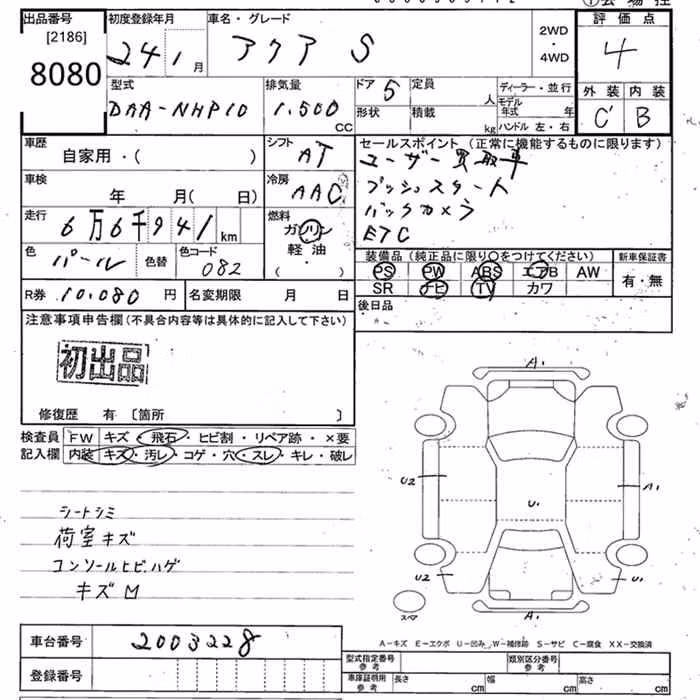 出品番号 初度登録年月 車名・グレード ①会場控
[2186]
8080
24年1月 アクア S 2WD・4WD
評価点
4
型式 排気量 ドア 5 定員 人 ディーラー・並行
DAA-NHP10 1.500 CC 形状 積載 kg モデル年式 年 ハンドル 左・右
外装 内装
C' B
車歴 自家用・( ) シフト AT
セールスポイント (正常に機能するものに限ります)
ユーザー買取車
プッシュスタート
バックカメラ
ETC
車検 年 月( 日) 冷房 AAC
走行 6万6千941km 燃料 ガソリン 軽・油 ( )
色 パール 色替 色コード 082
装備品 (純正品に限り○をつけてください) 新車保証書
PS PW ABS エアB AW 有・無
SR ナビ TV カワ
R券 10.080 円 名変期限 月 日 後日品
注意事項申告欄(不具合内容等は具体的に記入して下さい)
初出品
修復歴 有 〔箇所 〕
検査員 FW キズ・飛石・ヒビ割・リペア跡・×要
記入欄 内装 キズ・汚レ・コゲ・穴・スレ・キレ・破レ
シートシミ
荷室キズ
コンソールヒビ、ハゲ
キズ
A1
U2 A1
U1
U2 U1
スペア A1
A-キズ E-エクボ U-凹み W-補修跡 S-サビ C-腐食 XX-交換済
車台番号 2003228
登録番号
型式指定番号 参考 類別区分番号 参考
車庫証明用 参考 長さ cm 幅 cm 高さ cm